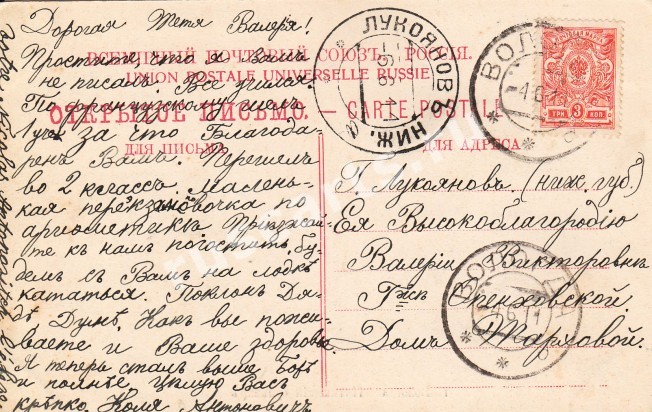 Дорогая Тетя Валерія!
Простите что я Вамъ
не писалъ. Все училъ.
По французскому имѣлъ
1 уч. за что Благода-
ренъ Вамъ. Перешелъ
во 2 классъ. маленькая
переэкзаменовочка по
ариѳметикѣ. Пріѣзжай-
те къ намъ погостить, Бу-
демъ съ Вамъ на лодкѣ
кататься. Поклонъ Дя-
дѣ Дунѣ, Какъ вы пожи-
ваете и Ваше здоровье.
Я теперь сталъ выше Боѣ
и полнѣе, цѣлую Васъ
крѣпко Коля Антоновичъ
ВСЕМІРНЫЙ ПОЧТОВЫЙ СОЮЗЪ. РОССІЯ.
UNION POSTALE UNIVERSELLE RUSSIE
ОТКРЫТОЕ ПИСЬМО. — CARTE POSTALE
ДЛЯ ПИСЬМА.
ДЛЯ АДРЕСА
ЛУКОЯНОВЪ
НИЖ.
ТРИ 3 КОП
Г. Лукояновъ (ниж. губ.)
Ея Высокоблагородію
Валеріи Викторовнѣ
Домъ Жарловой.